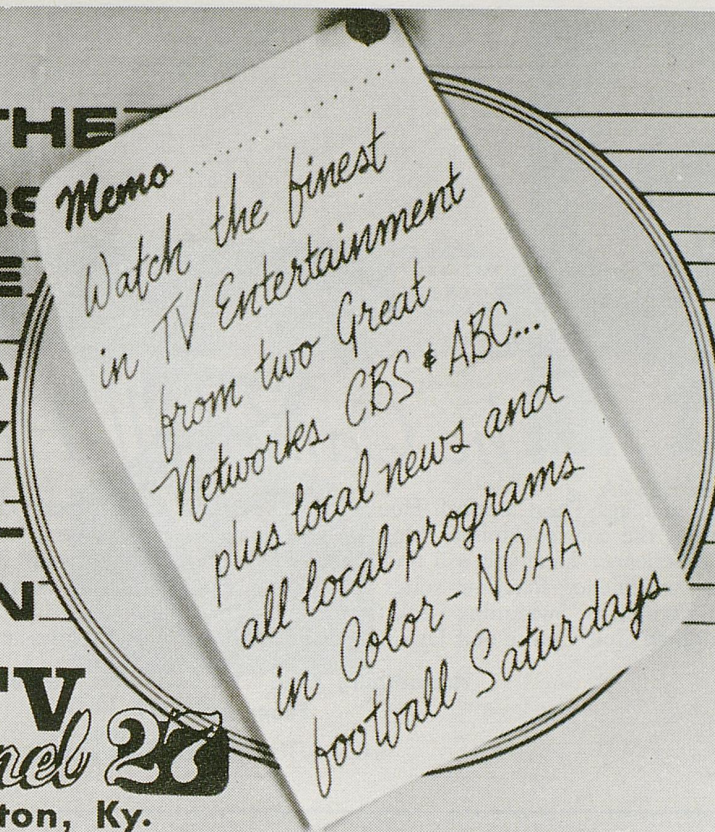 THE
RS
E
Memo
Watch the finest
in TV Entertainment
from two Great
Networks CBS & ABC...
plus local news and
all local programs
in Color - NCAA
football Saturdays
N
TV
nel 27
ton, Ky.